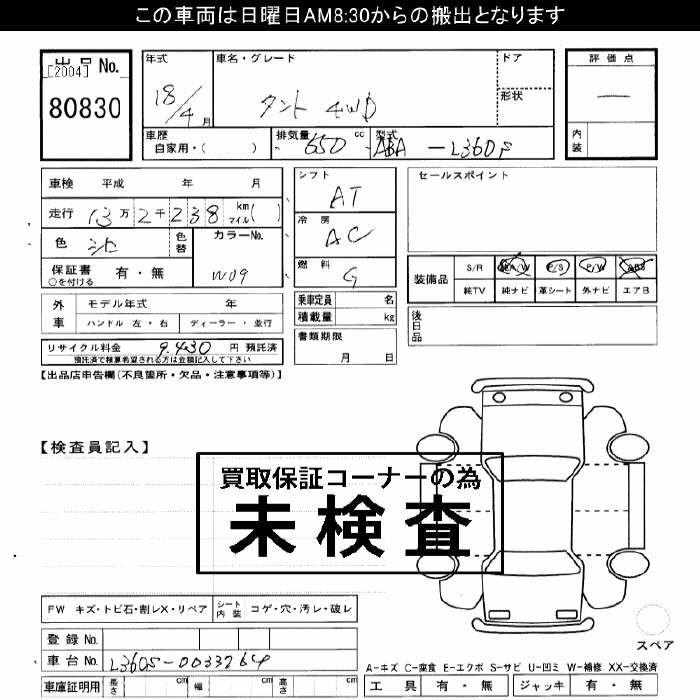 この車両は日曜日AM8:30からの搬出となります
出品 No.
[2004]
80830
年式
18/4月
車名・グレード
タント 4WD
ドア
形状
評価点
―
内装
車歴
自家用・( )
排気量
650 cc
型式
ABA-L360S
車検 平成 年 月
走行 13万2千238 km マイル( )
色 シロ
色替
カラーNo.
W09
保証書 有・無
○を付ける
シフト
AT
冷房
AC
燃料
G
セールスポイント
装備品
S/R
A/W
P/S
P/W
ABS
純TV
純ナビ
革シート
外ナビ
エアB
外車
モデル年式 年
ハンドル 左・右
ディーラー・並行
乗車定員 名
積載量 kg
後日品
リサイクル料金 9,430 円 預託済
預託済で積算希望される方は金額記入して下さい
書類期限
月 日
【出品店申告欄(不良箇所・欠品・注意事項等)】
【検査員記入】
買取保証コーナーの為
未検査
FW キズ・トビ石・割レX・リペア
シート内装
コゲ・穴・汚レ・破レ
登録No.
車台No.
L360S-0033764
車庫証明用
長さ cm
幅 cm
高さ cm
スペア
A-キズ C-腐食 E-エクボ S-サビ U-凹ミ W-補修 XX-交換済
工具 有・無
ジャッキ 有・無